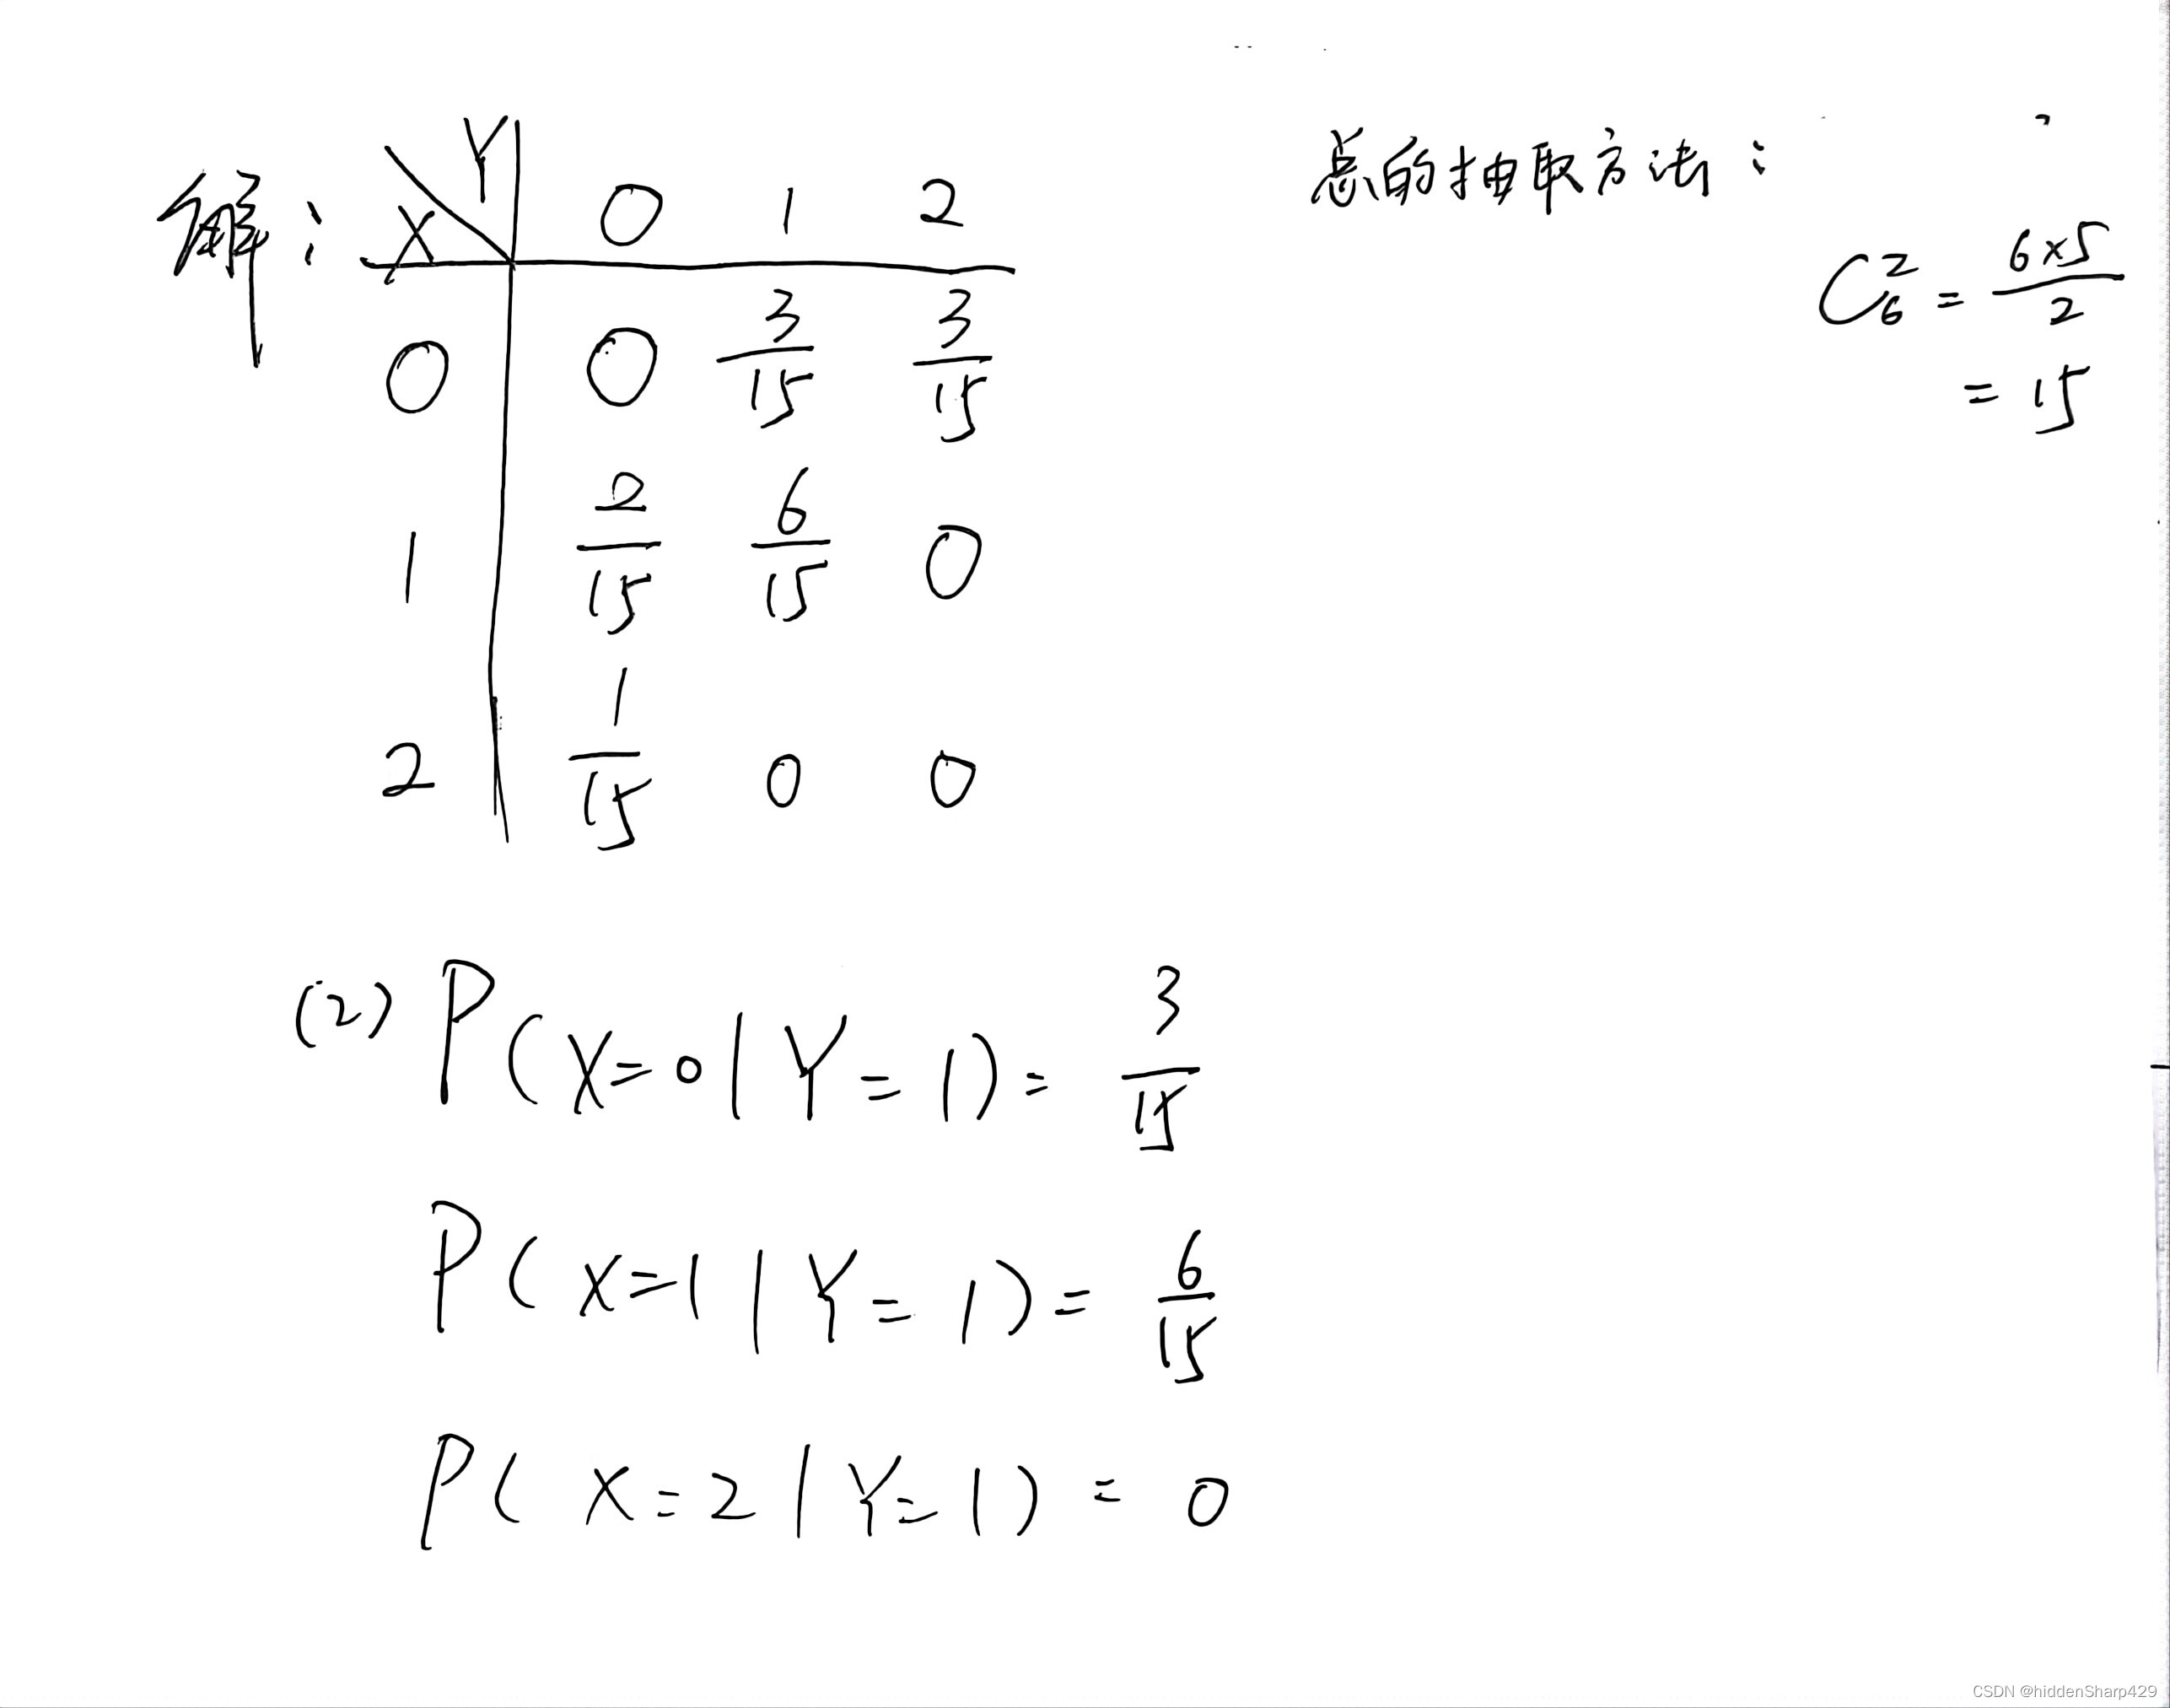 解： X Y 0 1 2
0 0 3/15 3/15
1 2/15 6/15 0
2 1/15 0 0
总的抽取方法：
C₆² = 6×5/2
= 15
(2) P(X=0|Y=1)= 3/15
P(X=1|Y=1)= 6/15
P(X=2|Y=1)= 0
CSDN @hiddenSharp429